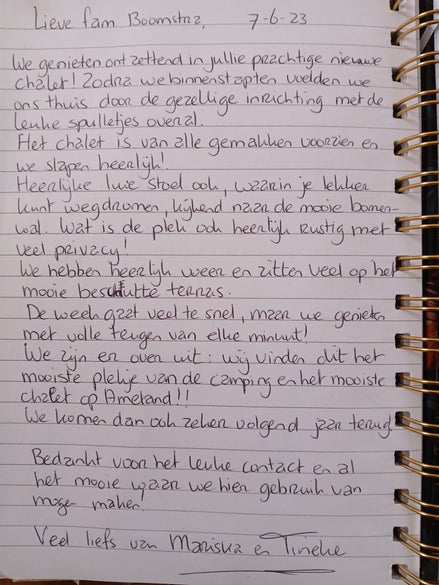 Lieve fam Boomstra, 7-6-23
We genieten ontzettend in jullie prachtige nieuwe
chalet! Zodra we binnenstapten voelden we
ons thuis door de gezellige inrichting met de
leuke spulletjes overal.
Het chalet is van alle gemakken voorzien en
we slapen heerlijk!
Heerlijke luie stoel ook, waarin je lekker
kunt wegdromen, kijkend naar de mooie bomen-
wal. Wat is de plek ook heerlijk rustig met
veel privacy!
We hebben heerlijk weer en zitten veel op het
mooie beschutte terras.
De week gaat veel te snel, maar we genieten
met volle teugen van elke minuut!
We zijn er over uit: wij vinden dit het
mooiste plekje van de camping en het mooiste
chalet op Ameland!!
We komen dan ook zeker volgend jaar terug
Bedankt voor het leuke contact en al
het mooie waar we hier gebruik van
mogen maken!
Veel liefs van Mariska en Tineke